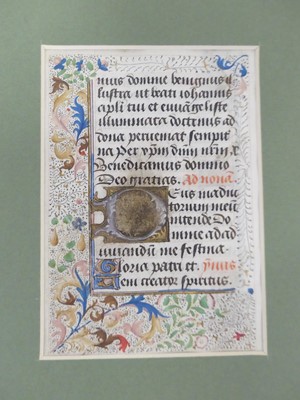 nuis domine benignus il
lustra ut beati iohannis
apli tui et euangeliste
illuminata doctrinis ad
dona perueniat sempite
na Per xpm dnm nrm R
Benedicamus domino
Deo gratias. Ad nonā
Deus in adiu
torium meū
intende Do
mine ad ad
iuuandū me festina
Gloria patri et. ymnus
Veni creator spiritus.